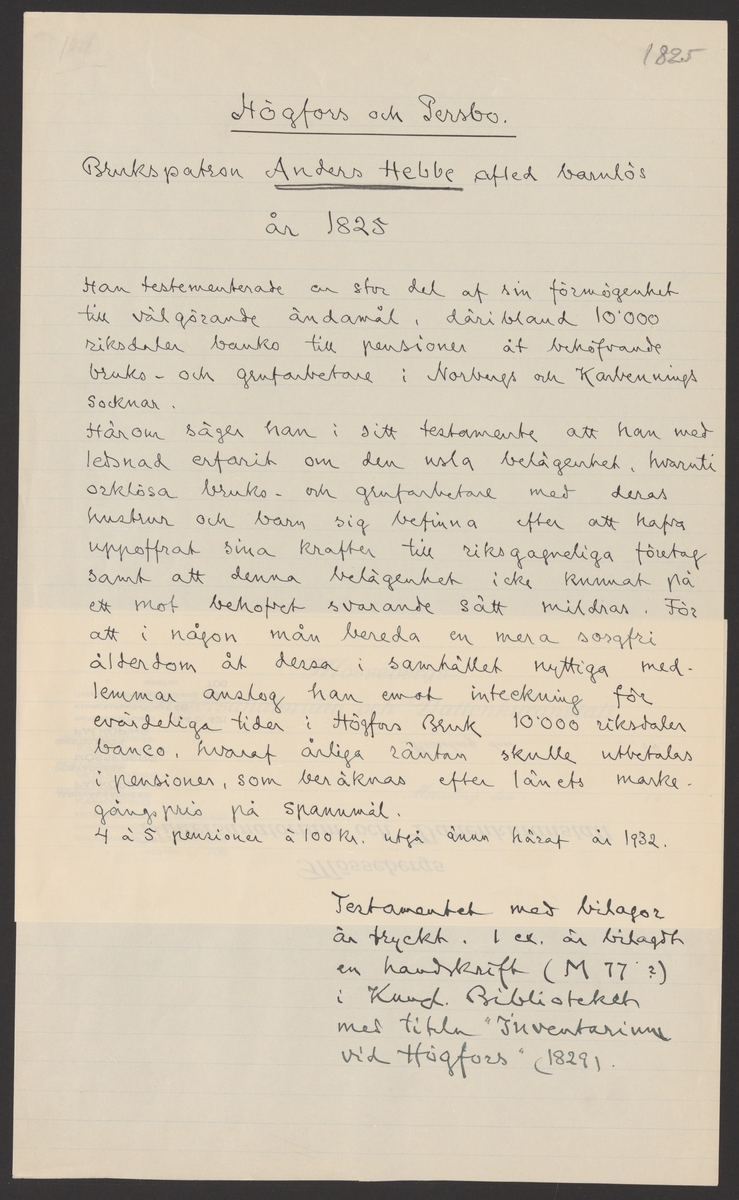 1825
Högfors och Persbo.
Brukspatron Anders Hebbe afled barnlös
år 1825
Han testementerade en stor del af sin förmögenhet
till välgörande ändamål, däribland 10'000
riksdaler banko till pensioner åt behöfvande
bruks- och grufarbetare i Norbergs och Karbennings
socknar.
Härom säger han i sitt testamente att han med
ledsnad erfarit om den usla belägenhet, hvaruti
orklösa bruks- och grufarbetare med deras
hustrur och barn sig befinna efter att hafva
uppoffrat sina krafter till riksgagneliga företag
samt att denna belägenhet icke kunnat på
ett mot behofvet svarande sätt mildras. För
att i någon mån bereda en mera sorgfri
ålderdom åt dessa i samhället nyttiga med-
lemmar anslog han emot inteckning för
evärdeliga tider i Högfors Bruk 10'000 riksdaler
banco, hvaraf årliga räntan skulle utbetalas
i pensioner, som beräknas efter länets marke-
gångspris på spannmål.
4 à 5 pensioner à 100 kr. utgå ännu häraf år 1932.
Testamentet med bilagor
är tryckt. 1 ex. är bilagdt
en handskrift (M 77 ?)
i Kungl. Biblioteket
med titeln "Inventarium
vid Högfors" (1829).
Mossebergs